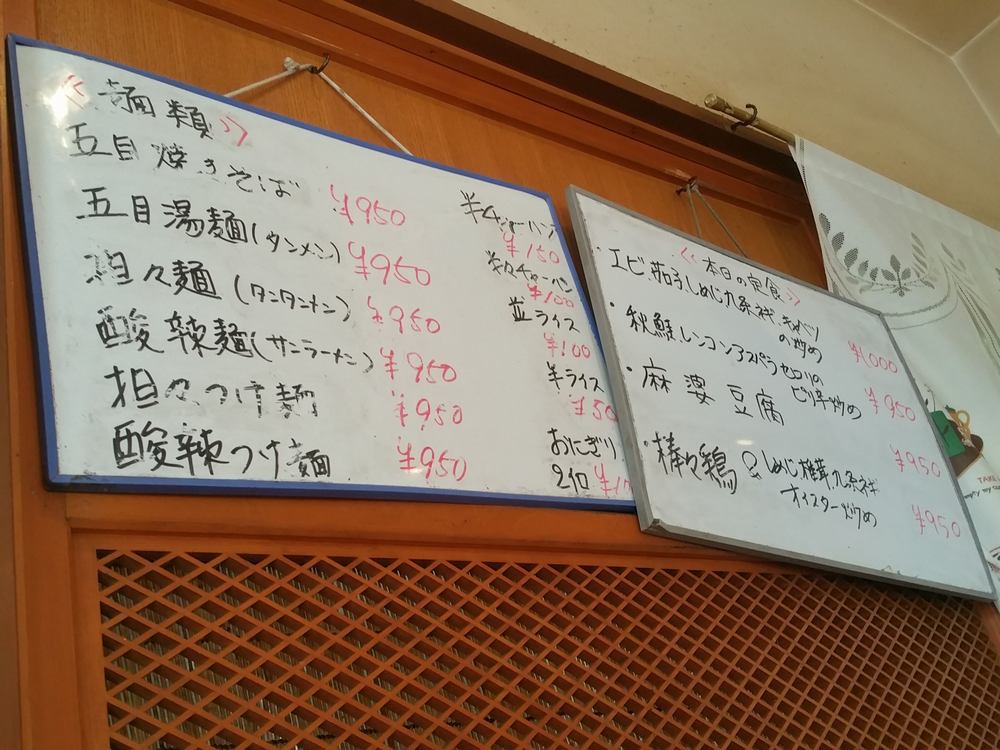 《麺類》
五目焼きそば ¥950
五目湯麺(タンメン) ¥950
担々麺(タンタンメン) ¥950
酸辣麺(サンラーメン) ¥950
担々つけ麺 ¥950
酸辣つけ麺 ¥950
半チャーハン
¥150
チャーハン
¥100
並ライス
¥100
半ライス
¥50
おにぎり
2個 ¥1
《本日の定食》
・エビ茄子しめじ九条ネギ
の炒め ¥1000
・秋鮭レンコンアスパラセロリの
ピリ辛炒め ¥950
・麻婆豆腐 ¥950
・棒々鶏&しめじ椎茸九条ネギ
オイスター炒め ¥950
TAKE